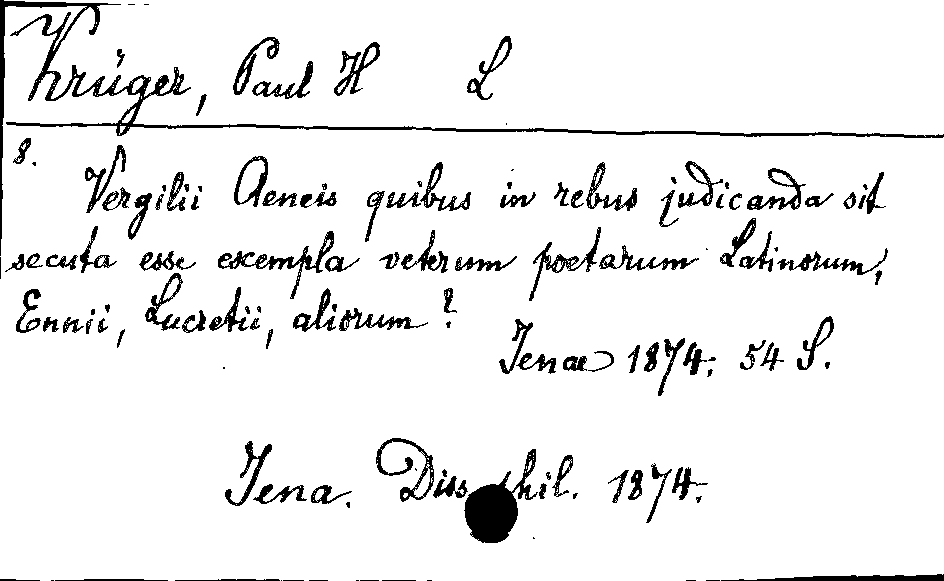 Krüger, Paul H L
8.
Vergilii Aeneis quibus in rebus judicanda sit
secuta esse exempla veterum poetarum Latinorum,
Ennii, Lucretii, aliorum?
Jenae 1874. 54 S.
Jena. Diss. phil. 1874.